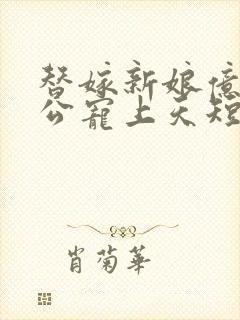 替嫁新娘億
公寵上天短
肖菊華